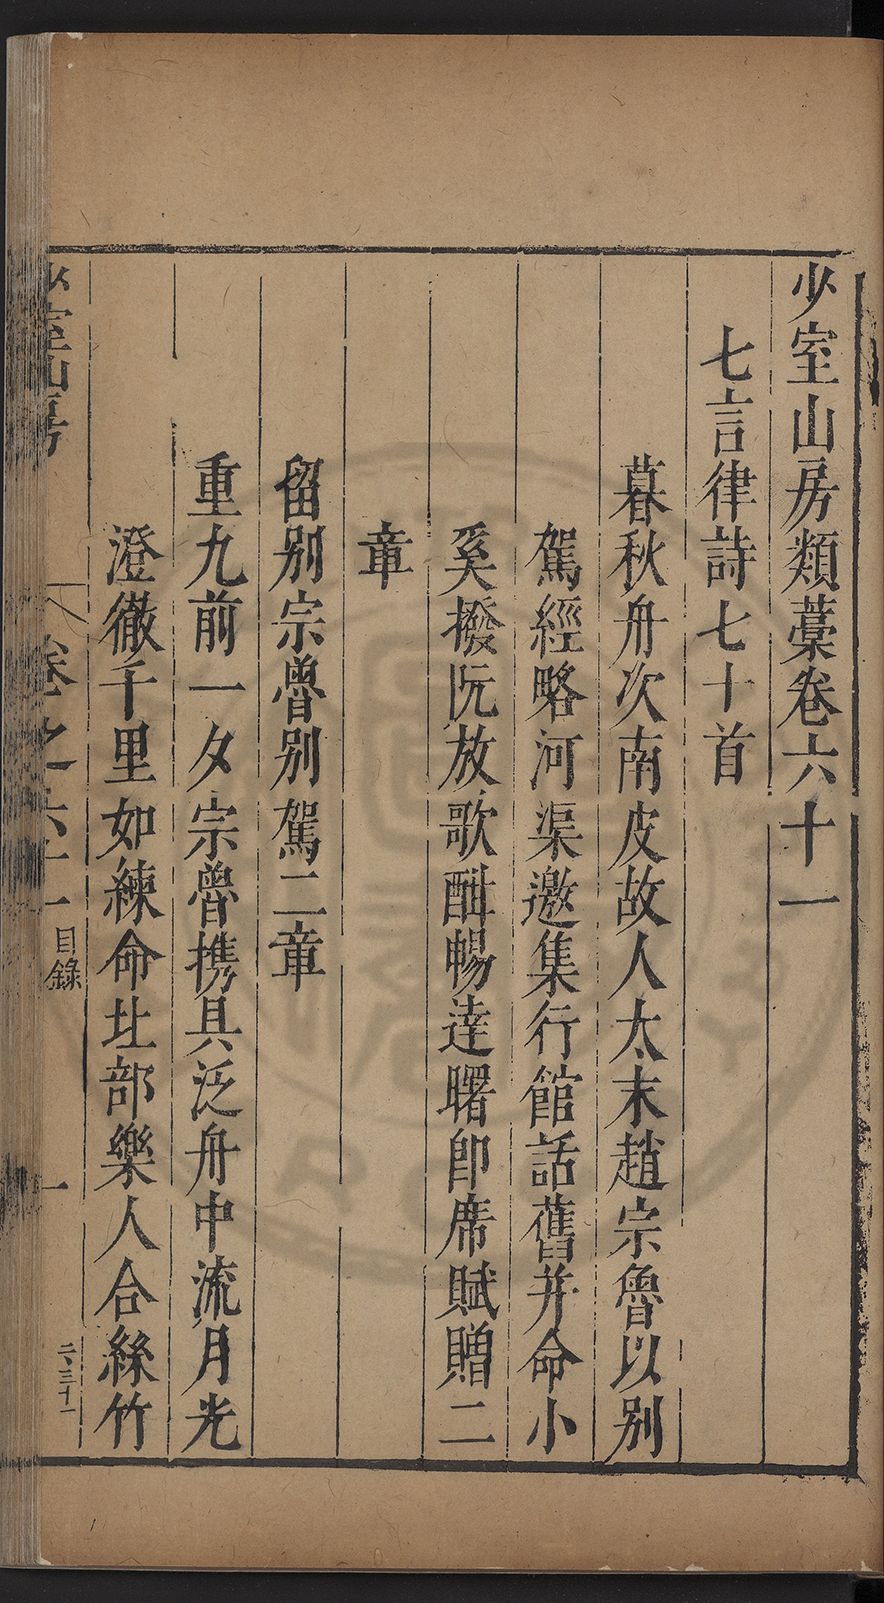 少室山房類藁卷六十一
七言律詩七十首
暮秋舟次南皮故人太末趙宗魯以別
駕經略河渠邀集行館話舊并命小
奚撥阮放歌酣暢達曙即席賦贈二
章
留別宗魯別駕二章
重九前一夕宗魯携具泛舟中流月光
澄徹千里如練命北部樂人合絲竹
少室山房
卷之六十一
目錄
一